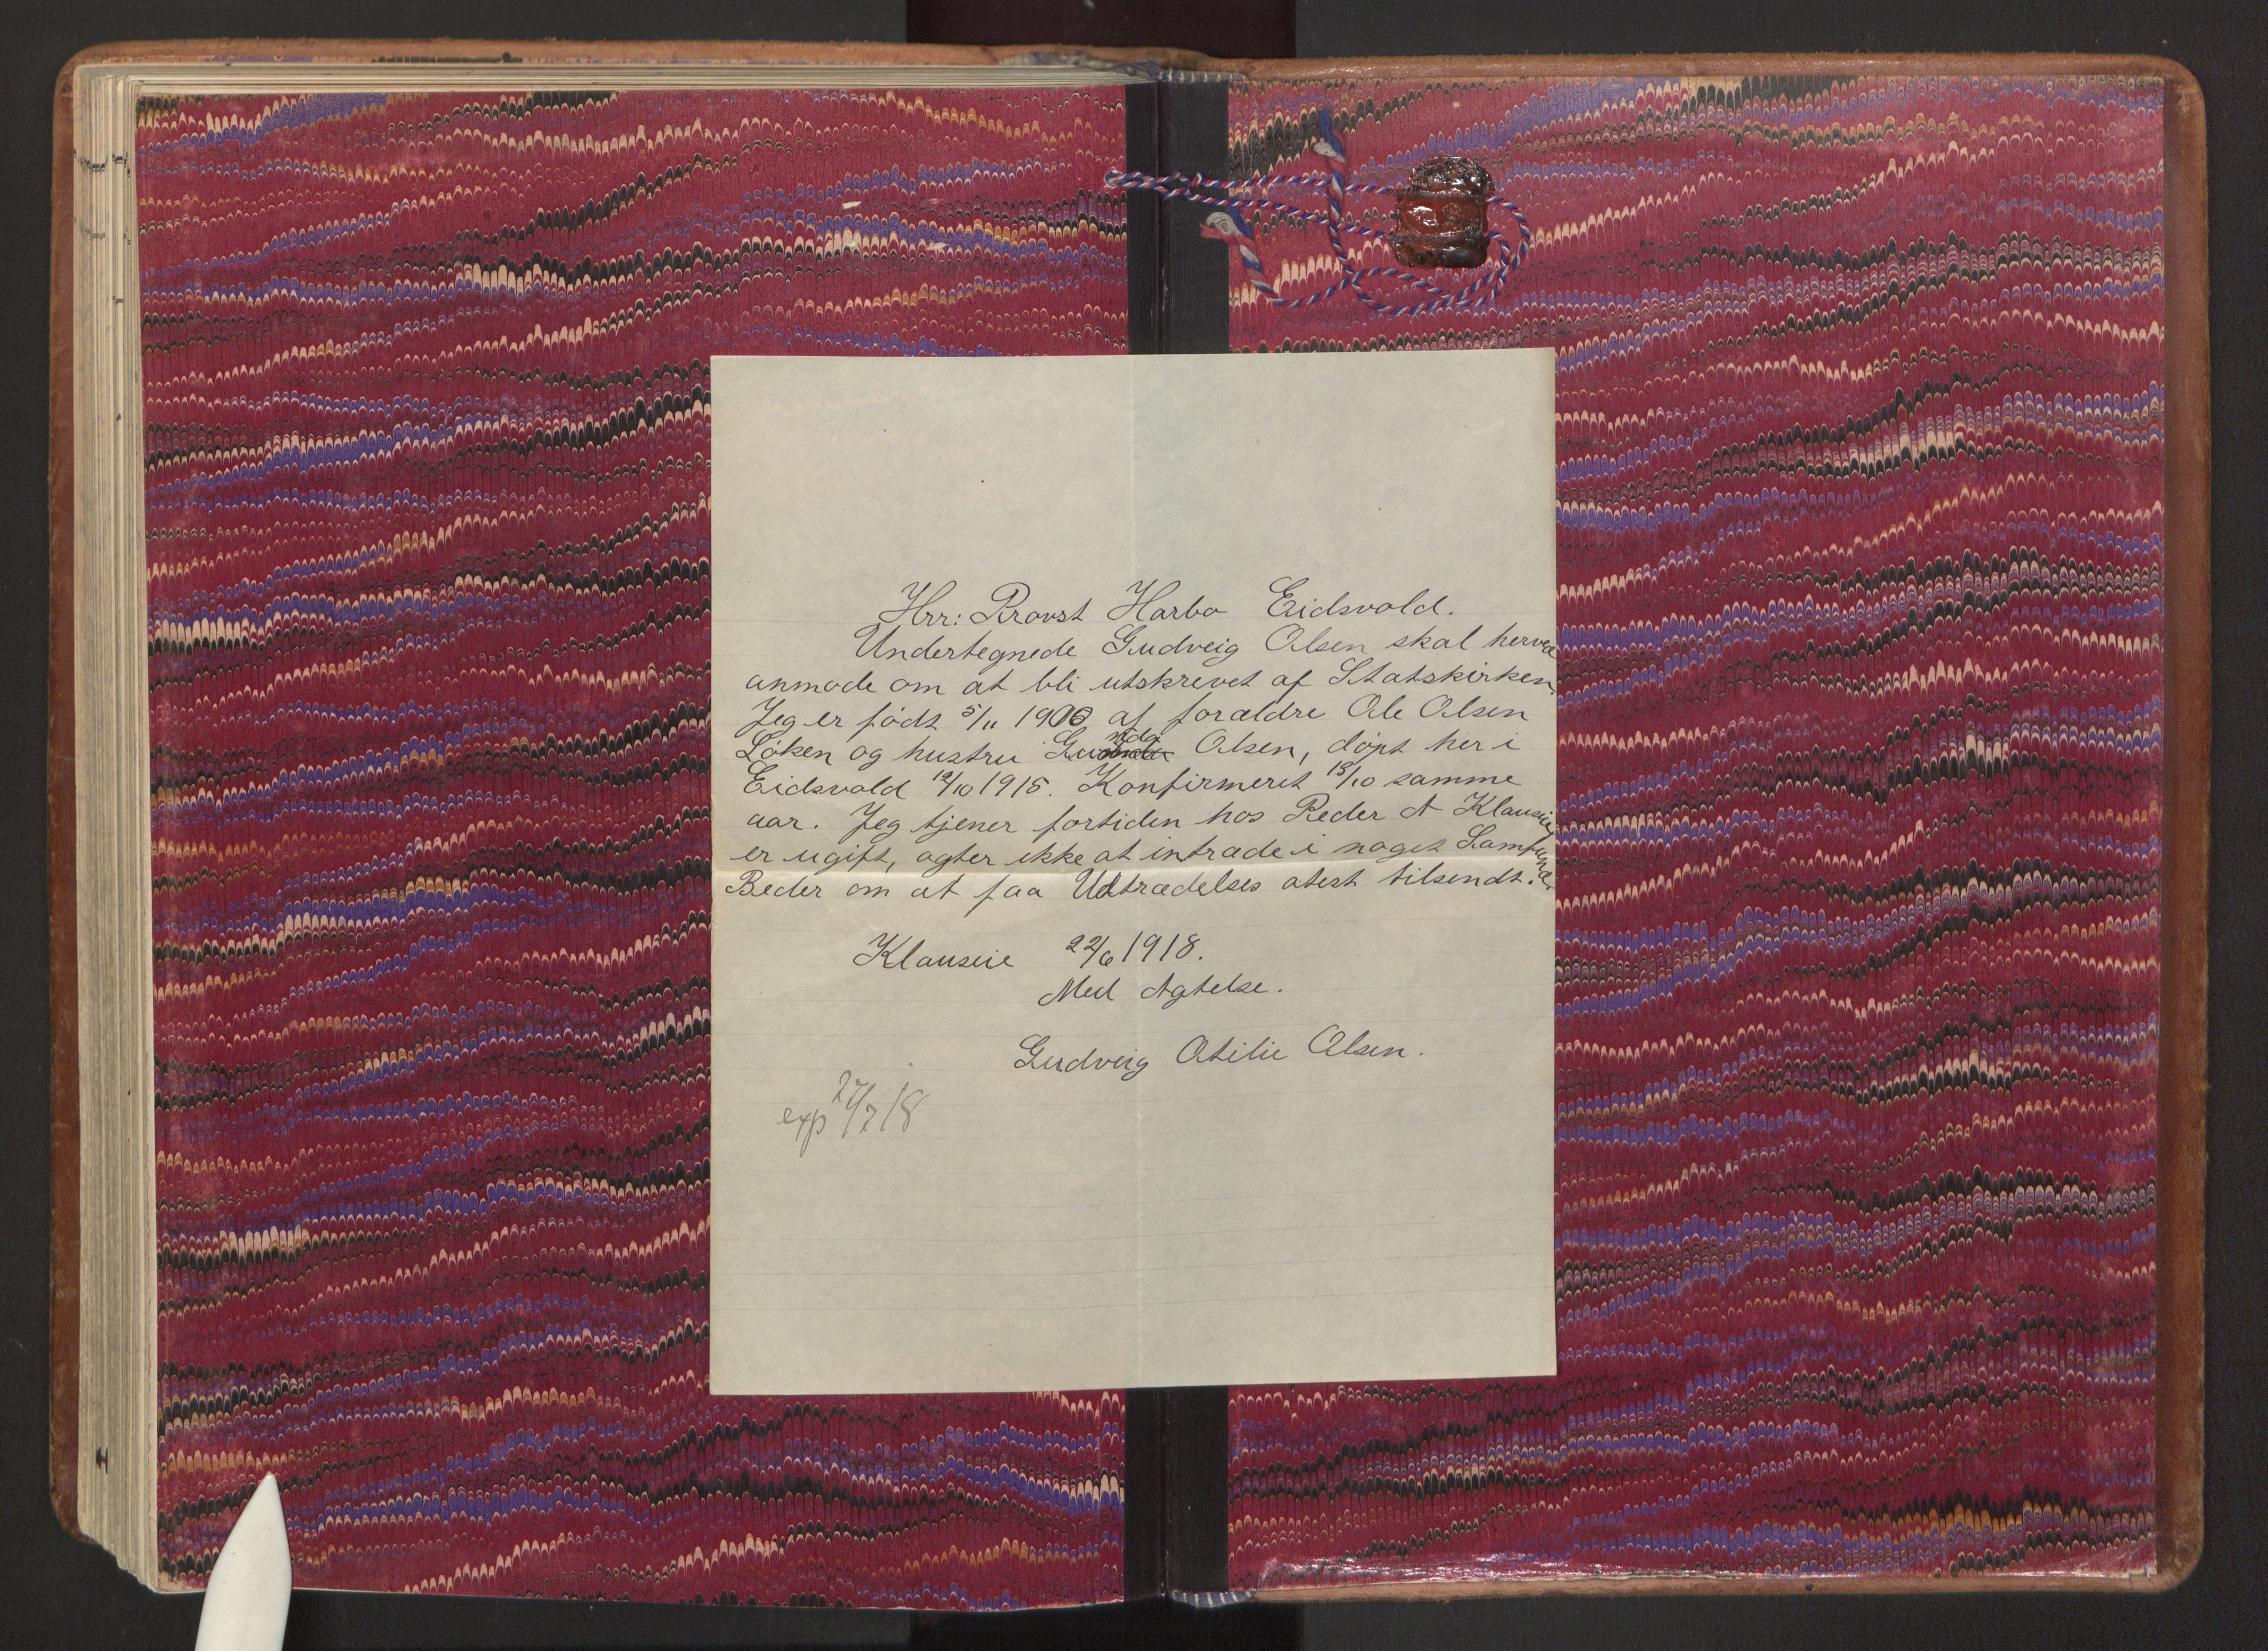 Hrr: Provst Harbo Eidsvold.
Undertegnede Gudveig Olsen skal herved
anmode om at bli utskrevet af Statskirken.
Jeg er födt 5/11 1900 af forældre Ole Olsen
Löken og hustru Gunda Olsen, döpt her i
Eidsvold 12/10 1915. Konfirmeret 13/10 samme
aar. Jeg tjener fortiden hos Peder A Klauseie,
er ugift, agter ikke at intræde i noget Samfund.
Beder om at faa Udtrædelses atest tilsendt.
Klauseie 22/6 1918.
Med Agtelse.
Gudveig Otilie Olsen.
exp 27/7 18